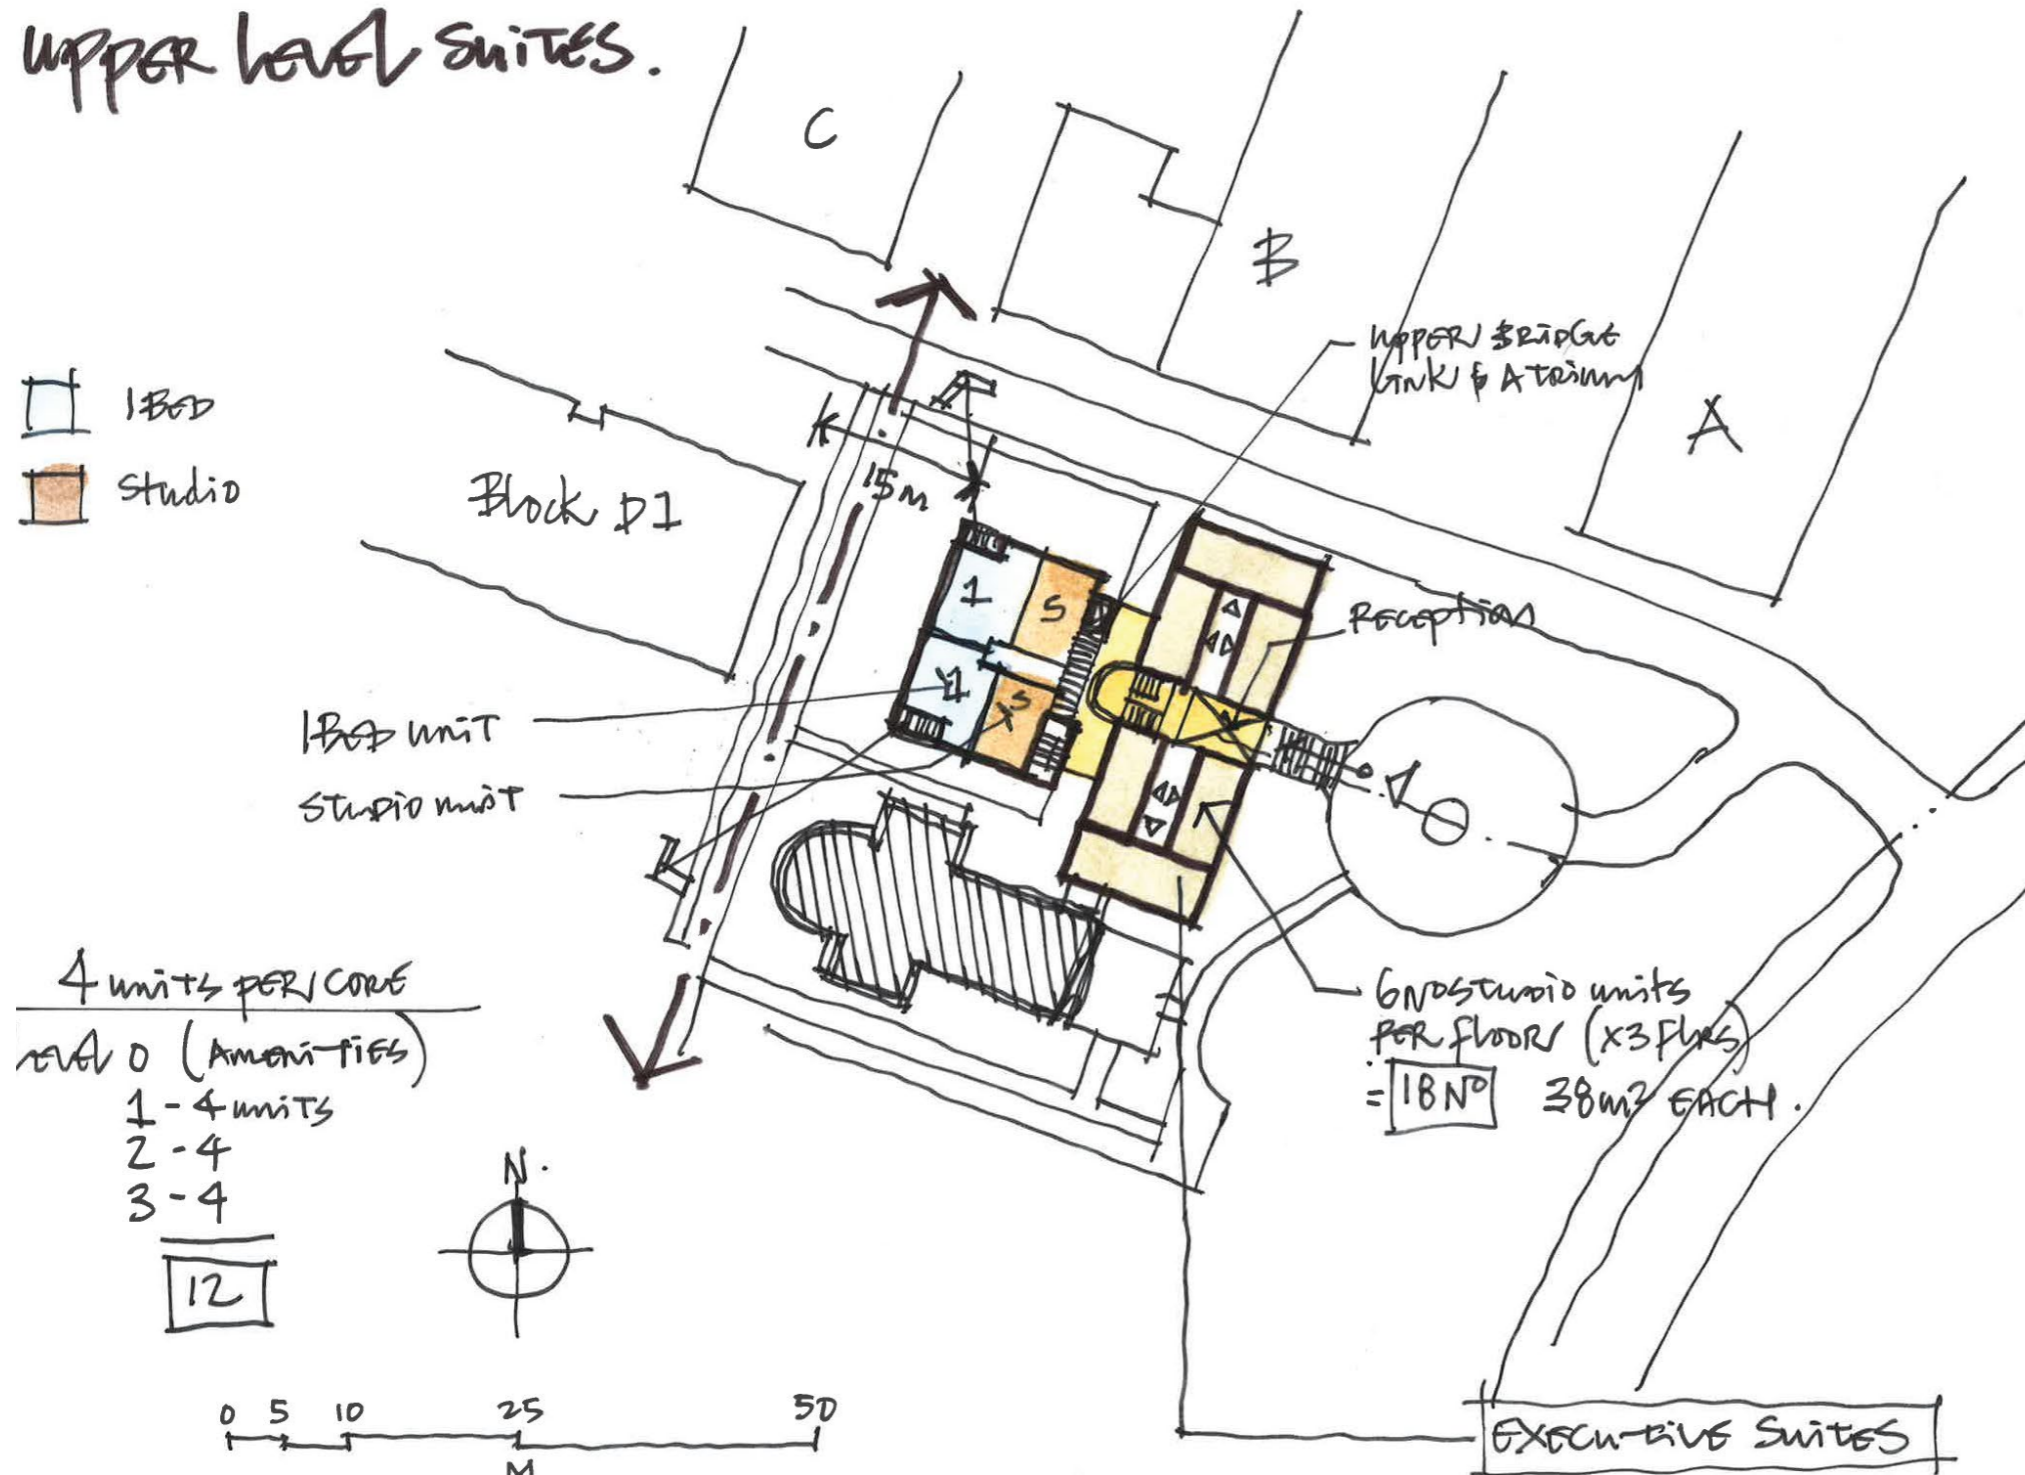 UPPER LEVEL SUITES.
C
B
A
UPPER BRIDGE
LINK & ATRIUM
1 BED
STUDIO
Block D1
15m
1
S
RECEPTION
1
S
1 BED UNIT
STUDIO UNIT
4 units PER CORE
LEVEL 0 (AMENITIES)
1 - 4 units
2 - 4
3 - 4
12
N.
6 NO STUDIO units
PER FLOOR (x3 FLRS)
= 18 Nº 38m² EACH.
0 5 10 25 50
M
EXECUTIVE SUITES